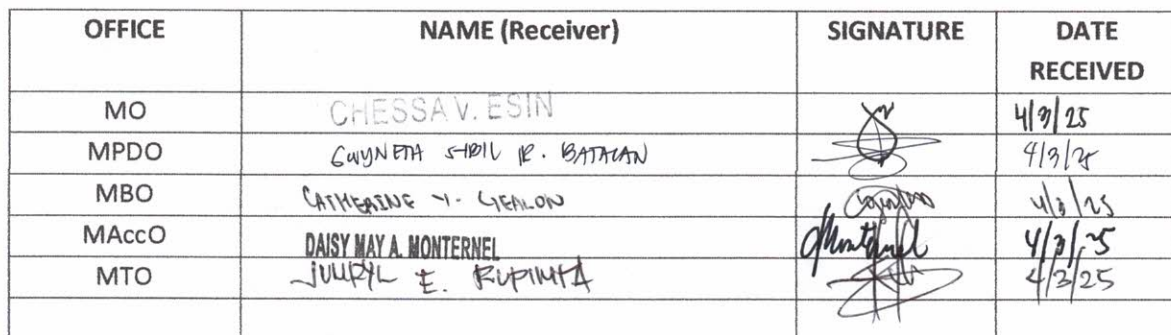 OFFICE NAME (Receiver) SIGNATURE DATE RECEIVED
MO CHESSA V. ESIN 4/3/25
MPDO R. BATACAN 4/3/25
MBO CATHERINE Y. GEALON 4/3/25
MAccO DAISY MAY A. MONTERNEL 4/3/25
MTO E. 4/3/25